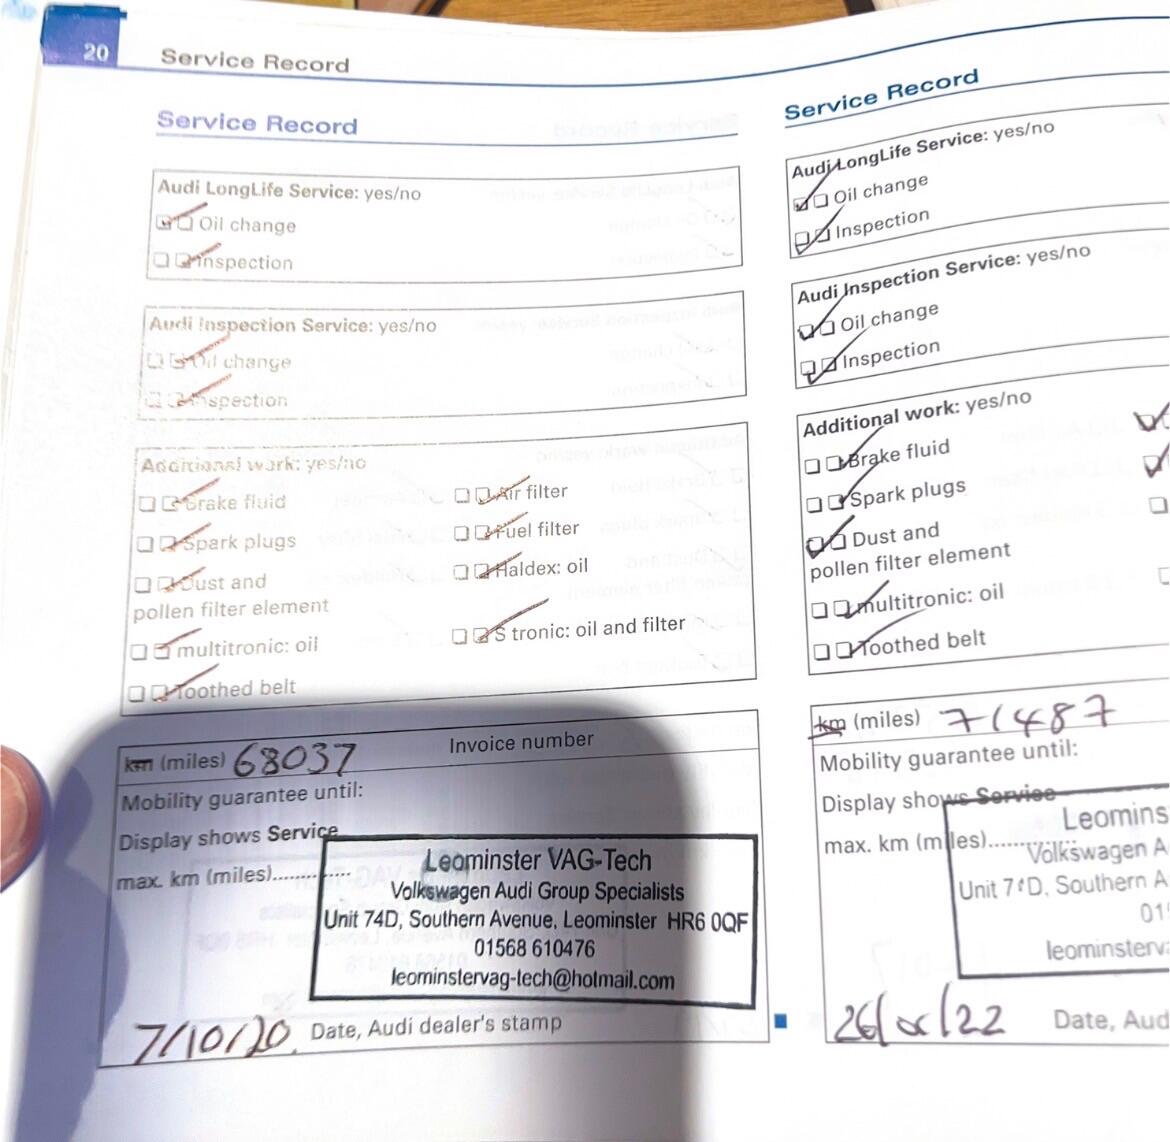 20
Service Record
Service Record
Audi LongLife Service: yes/no
Oil change
Inspection
Audi Inspection Service: yes/no
Oil change
Inspection
Additional work: yes/no
Brake fluid
Spark plugs
Dust and
pollen filter element
multitronic: oil
Toothed belt
Air filter
Fuel filter
Haldex: oil
S tronic: oil and filter
km (miles) 68037 Invoice number
Mobility guarantee until:
Display shows Service
max. km (miles)............
Leominster VAG-Tech
Volkswagen Audi Group Specialists
Unit 74D, Southern Avenue, Leominster HR6 0QF
01568 610476
leominstervag-tech@hotmail.com
7/10/20. Date, Audi dealer's stamp
Service Record
Audi LongLife Service: yes/no
Oil change
Inspection
Audi Inspection Service: yes/no
Oil change
Inspection
Additional work: yes/no
Brake fluid
Spark plugs
Dust and
pollen filter element
multitronic: oil
Toothed belt
km (miles) 71487
Mobility guarantee until:
Display shows Service
max. km (miles)......
Leomins
Volkswagen A
Unit 7 D, Southern A
01
leominsterv
26/ /22 Date, Aud